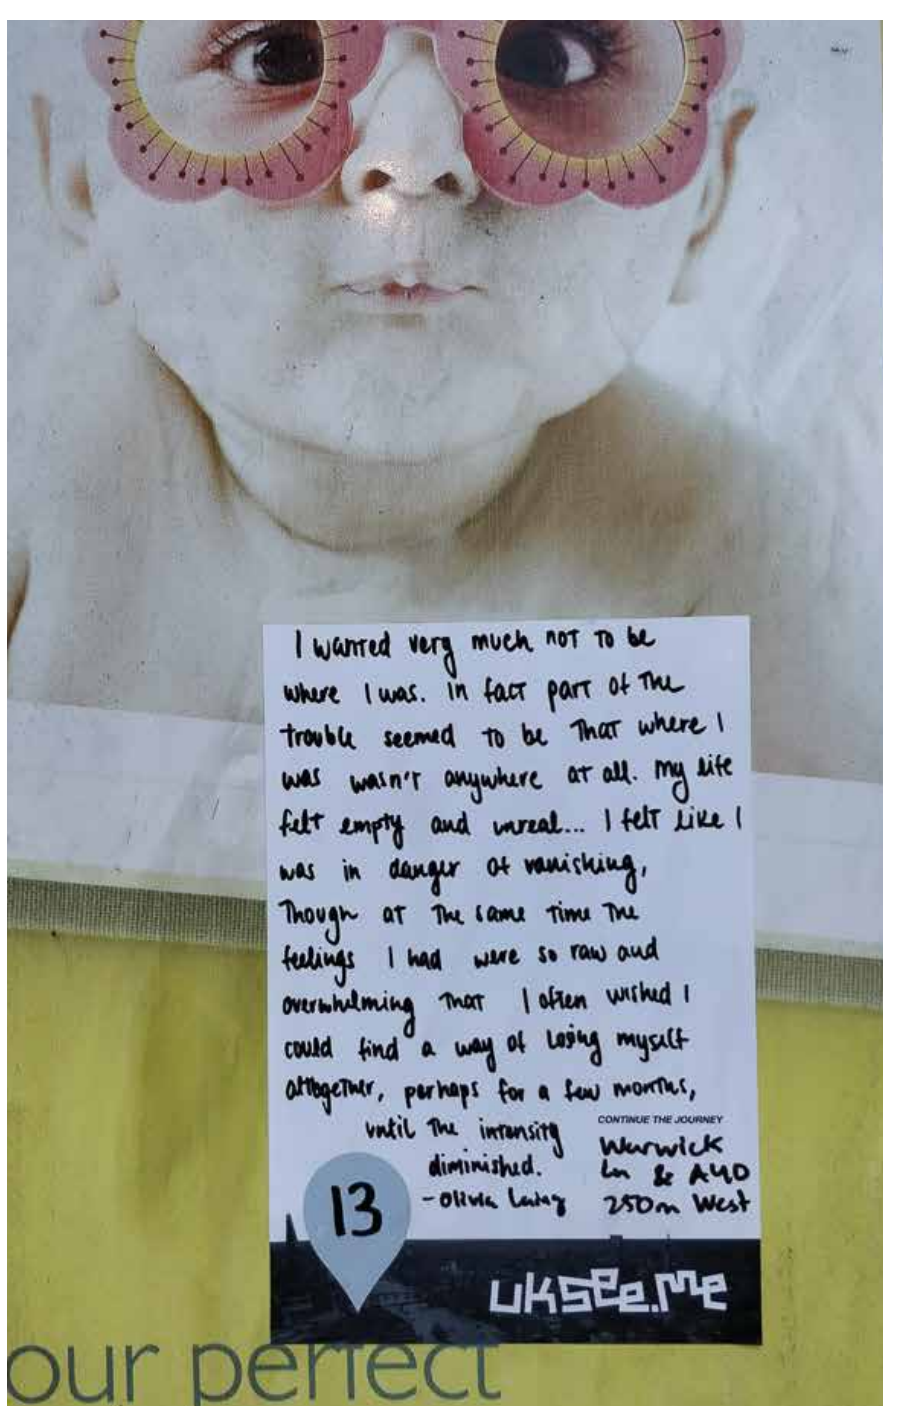 I wanted very much not to be
where I was. In fact part of the
trouble seemed to be that where I
was wasn't anywhere at all. My life
felt empty and unreal... I felt like I
was in danger of vanishing,
though at the same time the
feelings I had were so raw and
overwhelming that I often wished I
could find a way of losing myself
altogether, perhaps for a few months,
until the intensity
diminished.
- Olivia Laing
CONTINUE THE JOURNEY
Warwick
Ln & A40
250m West
13
uksee.me
our perfect